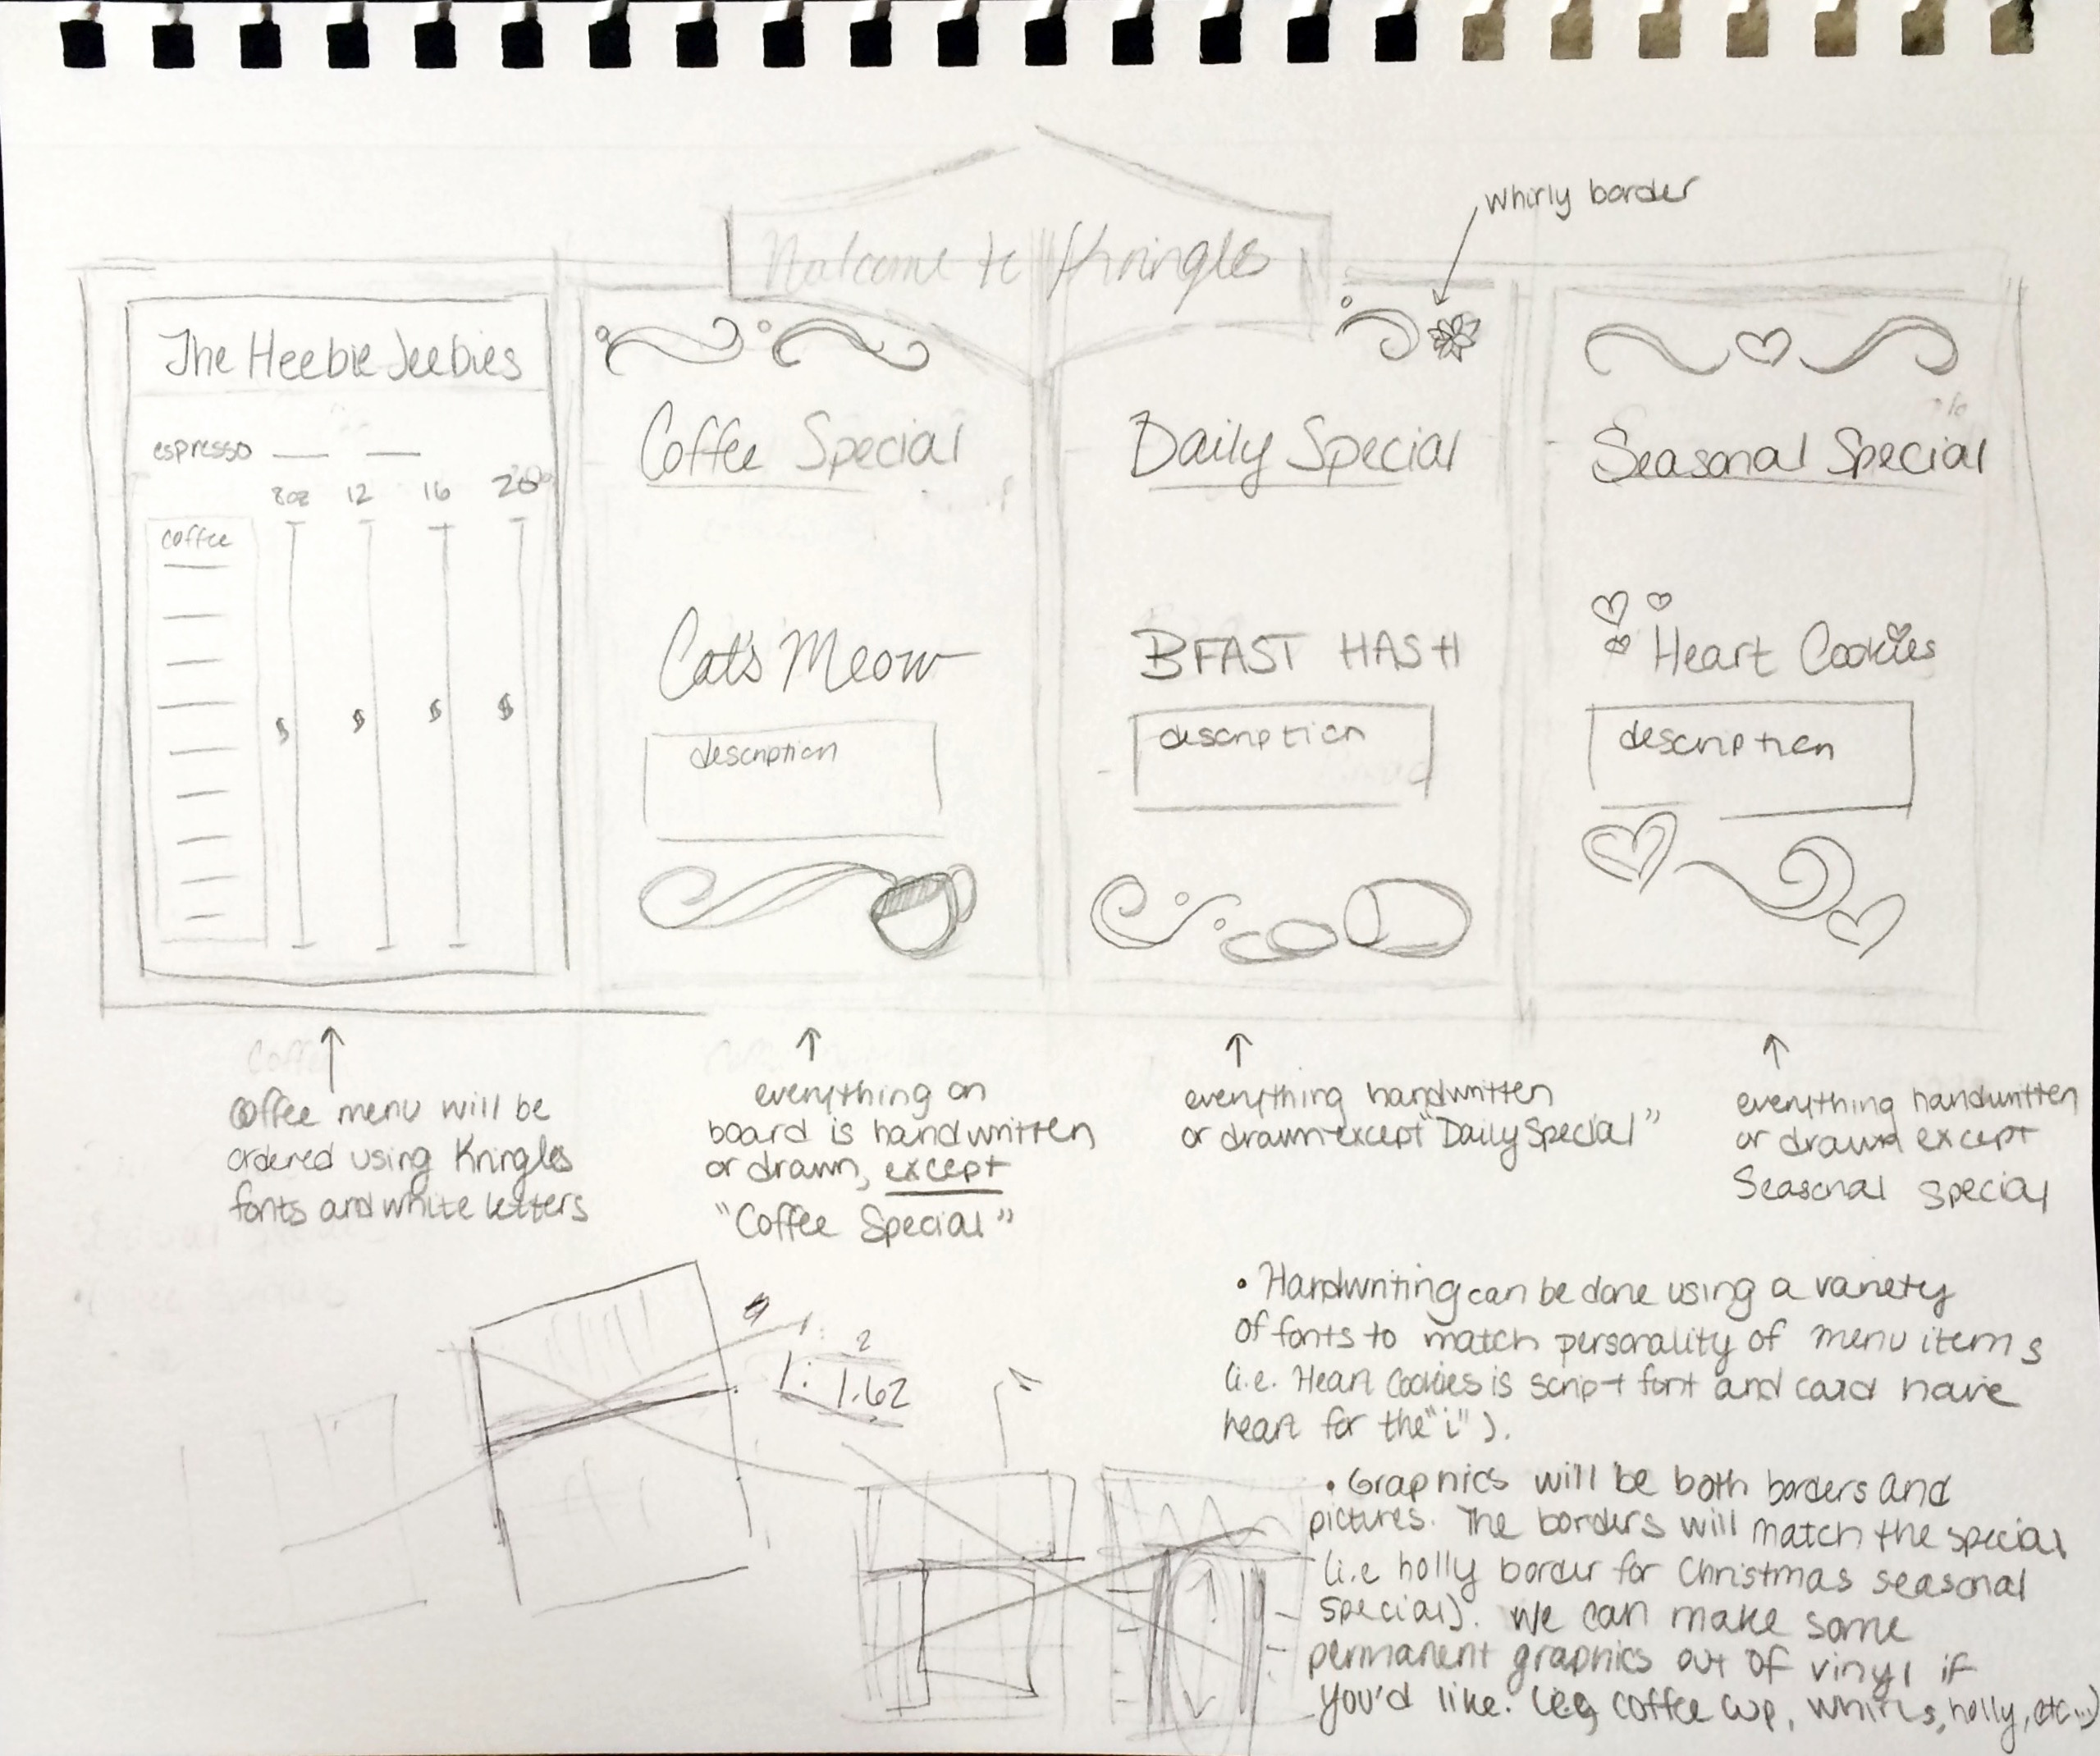 whirly border
Welcome to Kringles
The Heebie Jeebies
espresso
8oz 12 16 20
coffee
$ $ $ $
Coffee Special
Cat's Meow
description
Daily Special
BFAST HASH
description
Seasonal Special
Heart Cookies
description
Coffee menu will be
ordered using Kringles
fonts and white letters
everything on
board is handwritten
or drawn, except
"Coffee Special"
everything handwritten
or drawn except "Daily Special"
everything handwritten
or drawn except
Seasonal Special
• Handwriting can be done using a variety
of fonts to match personality of menu items
(i.e. Heart Cookies is script font and could have
heart for the "i").
• Graphics will be both borders and
pictures. The borders will match the special
(i.e holly border for Christmas seasonal
special). We can make some
permanent graphics out of vinyl if
you'd like. (eg coffee cup, whirls, holly, etc...)
2
1: 1.62